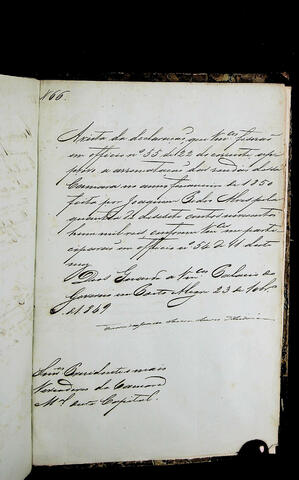 N 66.
A vista da declaração que Vm.ces fizerão
em officio nº 35 de 22 do corrente, ap
provo a arrematação das rendas dessa
Camara no anno financeiro de 1850
feita por Joaquim Pedro pela
quantia de desoito contos novecentos
e hum mil reis conforme Vm.ces me parti
ciparão em officio nº 34 de 11 deste
mez
Deos Guarde a Vm.ces Palacio do
Governo em Porto Alegre 23 de
de 1869
Senr.es Presidente e mais
Vereadores da Camara
M.al desta Capital.